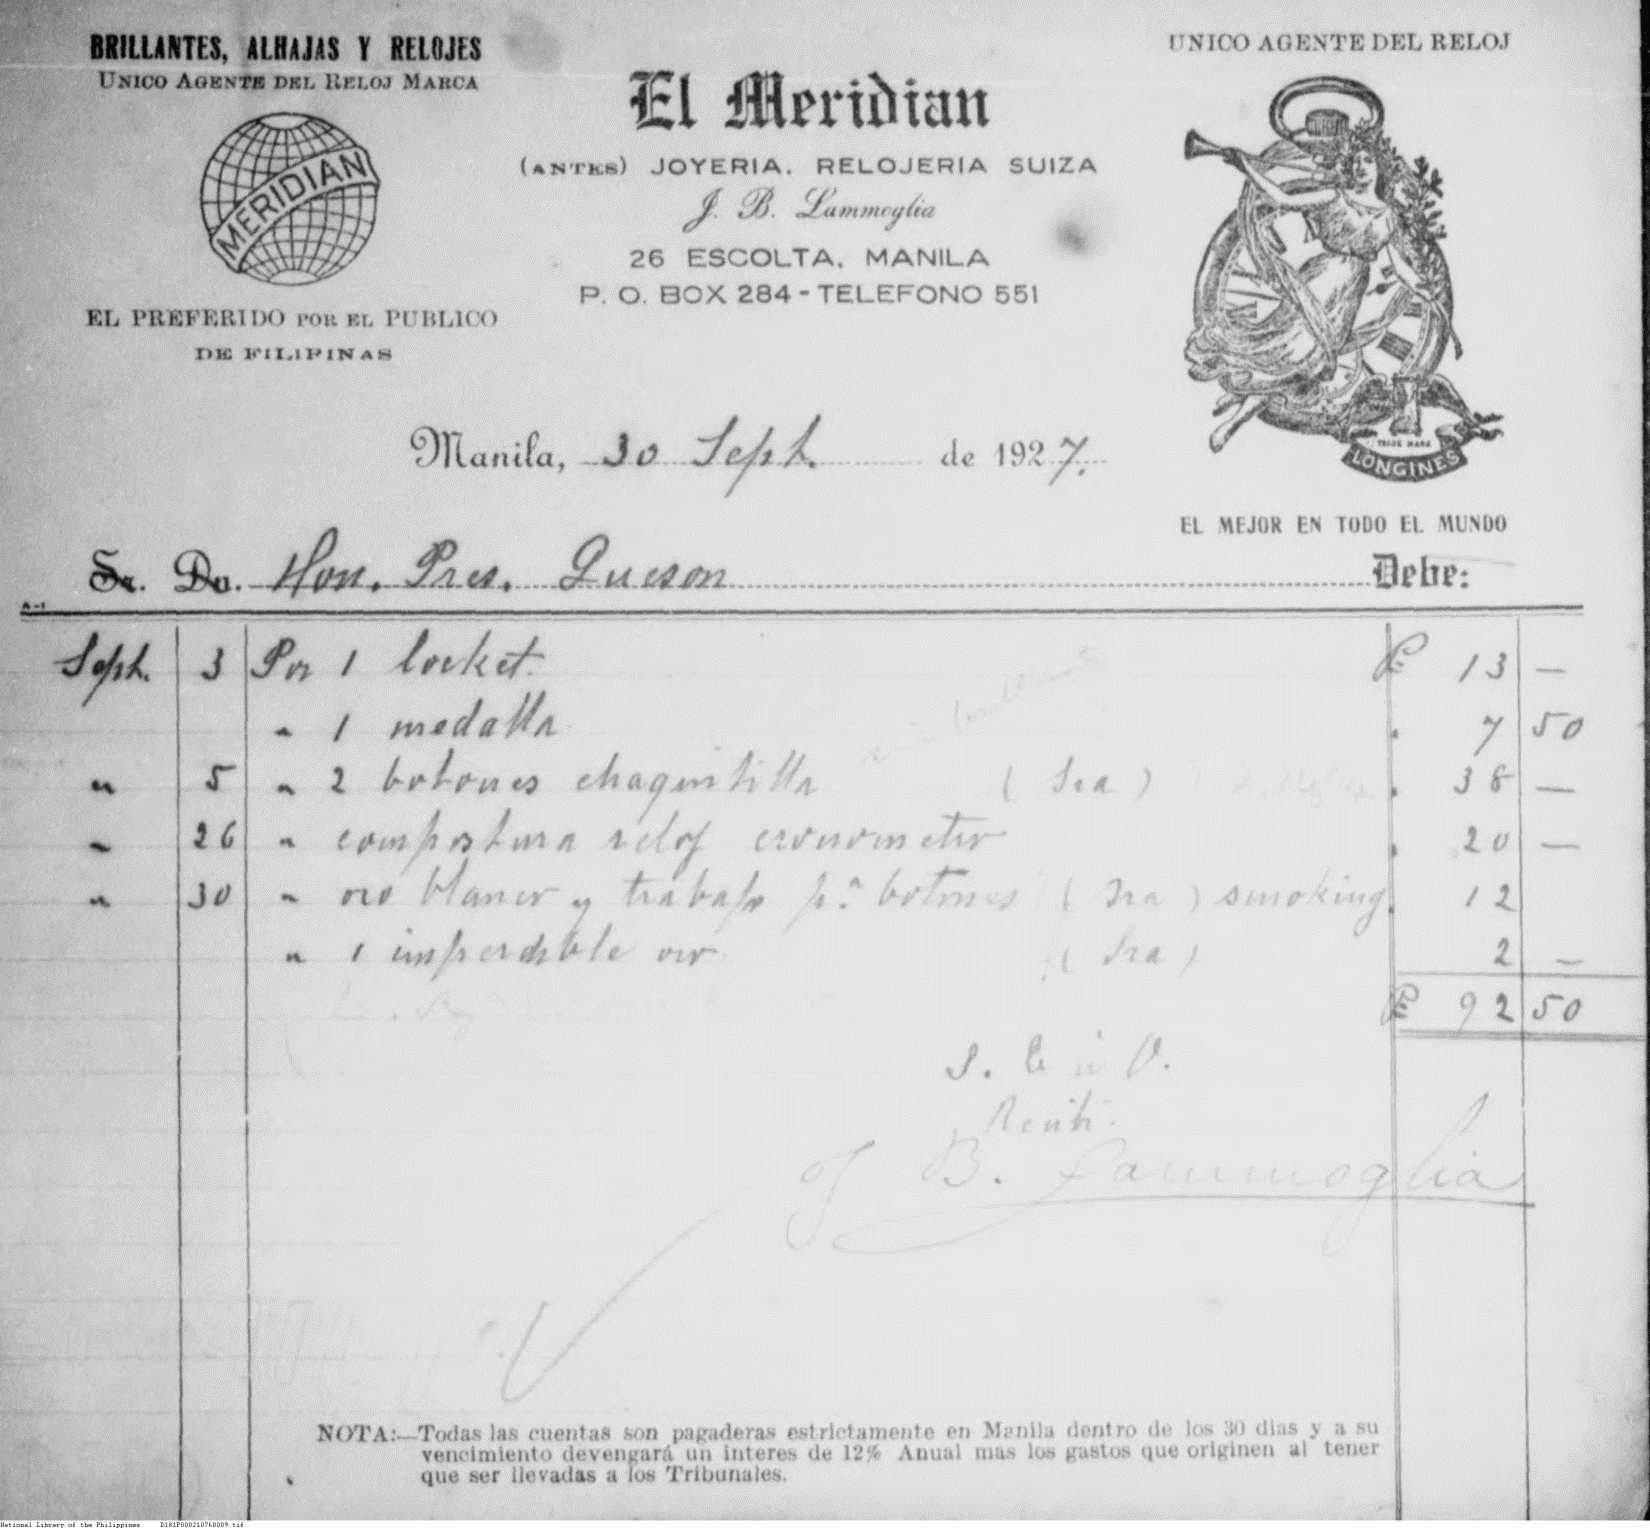 BRILLANTES, ALHAJAS Y RELOJES
UNICO AGENTE DEL RELOJ MARCA
MERIDIAN
EL PREFERIDO POR EL PUBLICO
DE FILIPINAS
El Meridian
(ANTES) JOYERIA. RELOJERIA SUIZA
J. B. Lammoglia
26 ESCOLTA. MANILA
P. O. BOX 284 - TELEFONO 551
UNICO AGENTE DEL RELOJ
TRADE MARK
LONGINES
EL MEJOR EN TODO EL MUNDO
Manila, 30 Sept. de 1927.
Sr. Dn. Hon. Pres. Queson Debe:
A-1
Sept. 3 Por 1 locket. ₱ 13 —
" 1 medalla " 7 50
" 5 " 2 botones chaquetilla (Sra) " 38 —
" 26 " compostura reloj cronometro " 20 —
" 30 " oro blanco y trabajo pa. botones (Sra) smoking " 12
" 1 imperdible oro (Sra) 2 —
₱ 92 50
S. E. ú O.
Recibi.
J B. Lammoglia
NOTA:—Todas las cuentas son pagaderas estrictamente en Manila dentro de los 30 dias y a su
vencimiento devengará un interes de 12% Anual mas los gastos que originen al tener
que ser llevadas a los Tribunales.
National Library of the Philippines D181P000210760009.tif